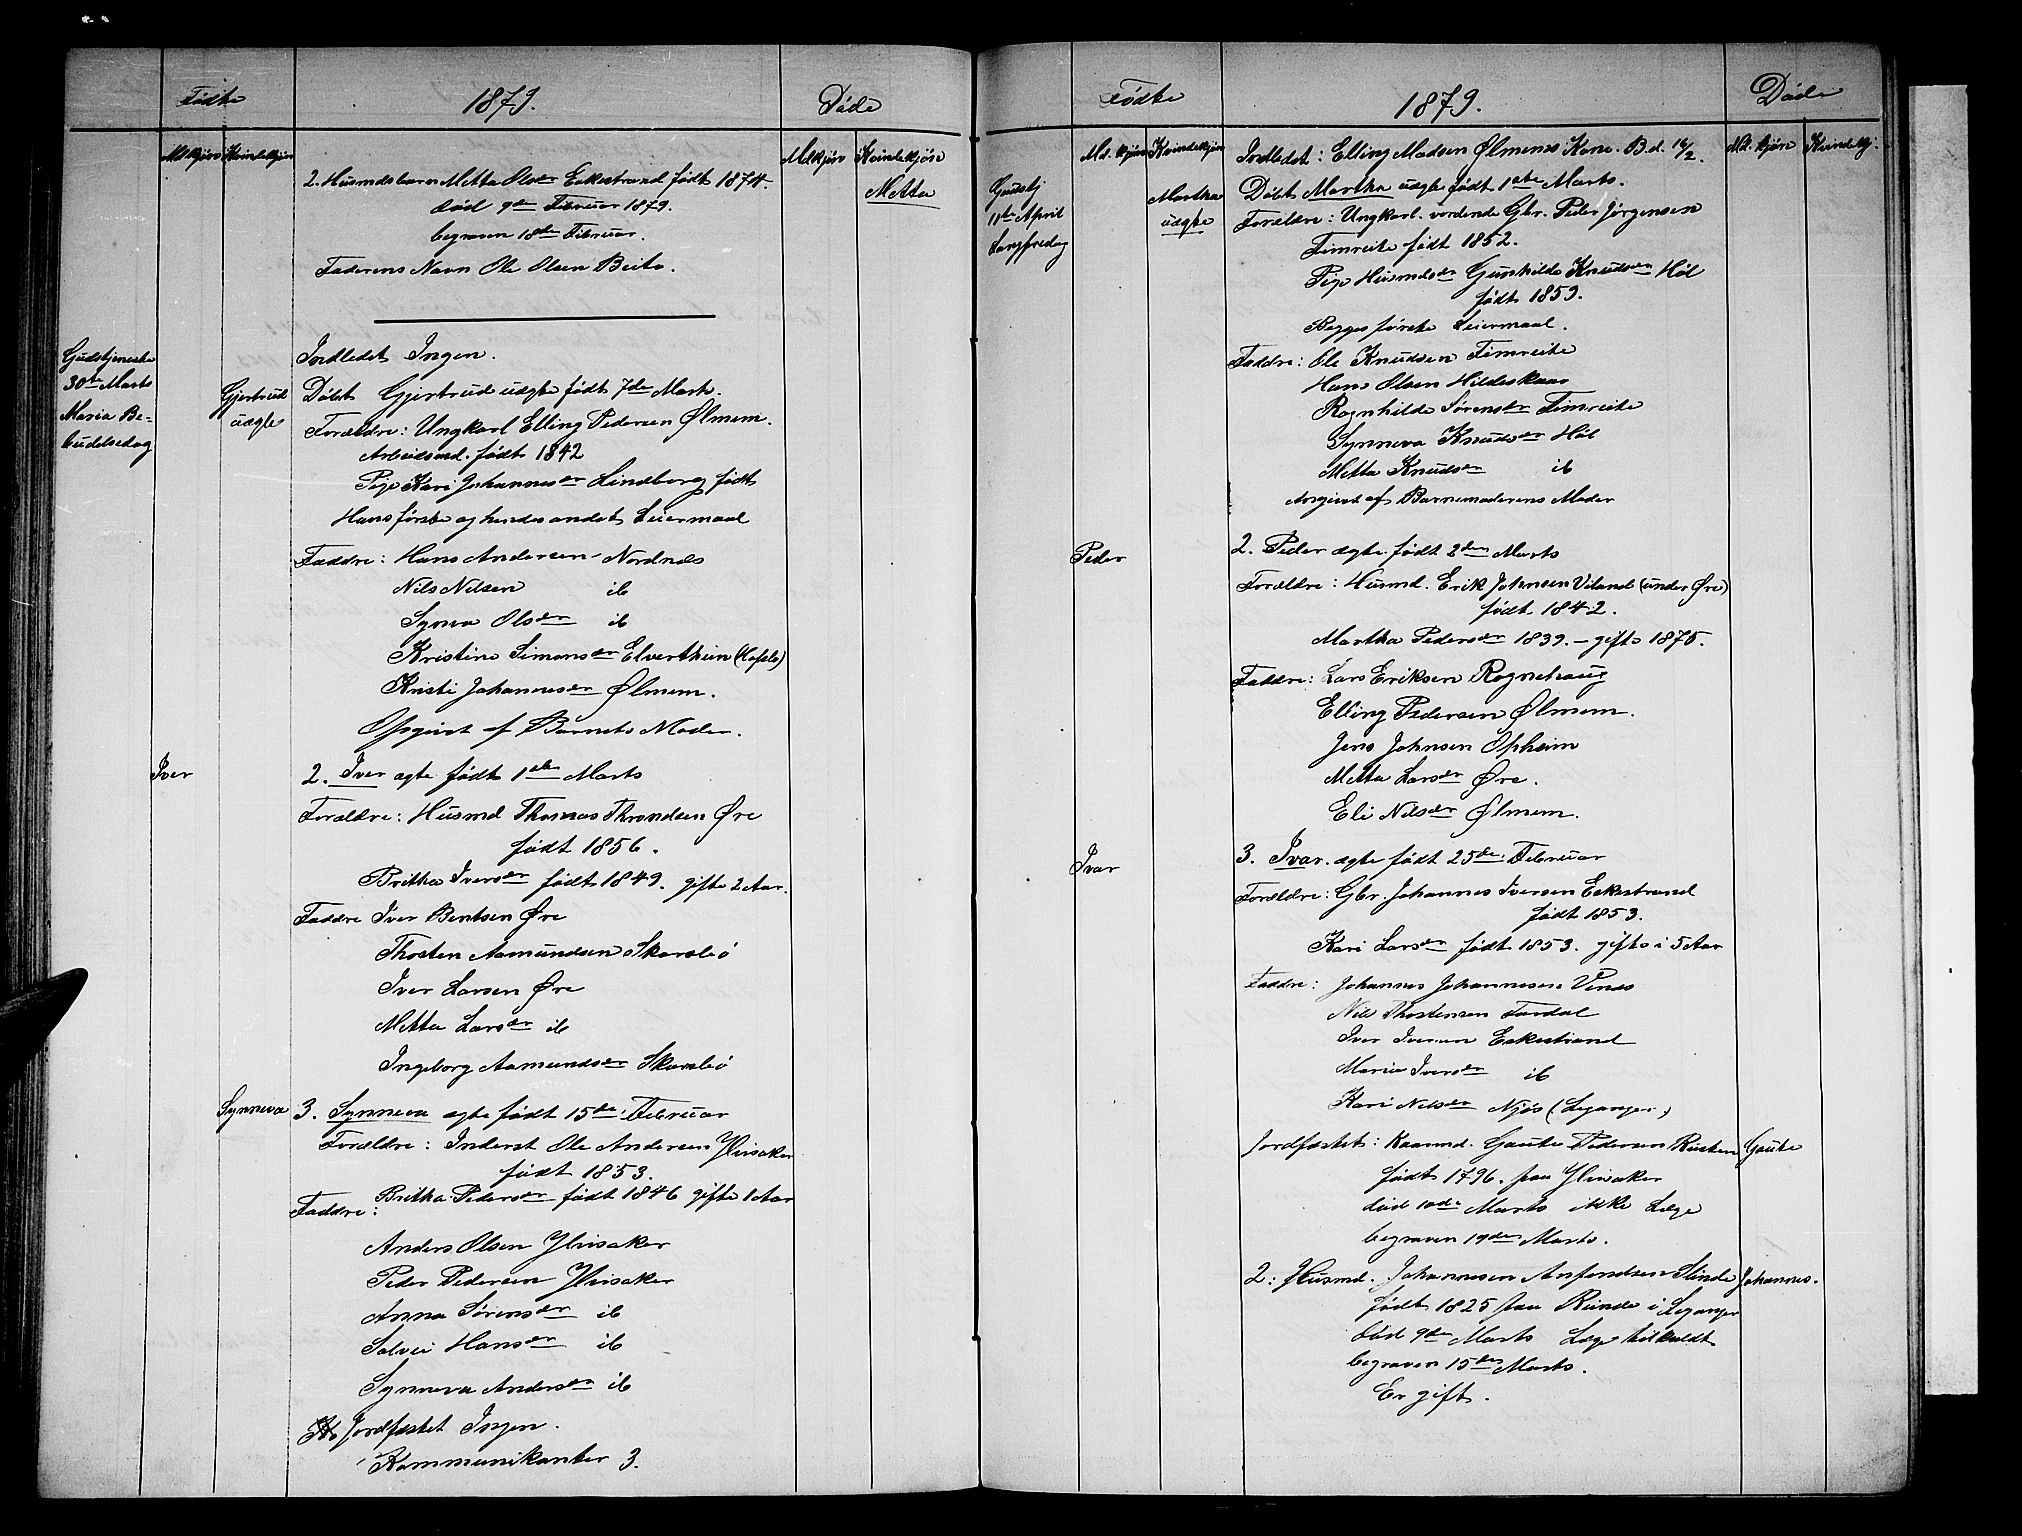 Fødte
1879.
Døde
Mdkjøn Kvindekjøn
Mdkjøn Kvindekjøn
2. Husmdsbarn Metta Olsdr Eckestrand født 1874.
Metta
død 9de Februar 1879.
begraven 18de Februar.
Faderens Navn Ole Olsen Beito.
Gudstjeneste
30te Marts
Maria Be-
budelsedag
Indledet Ingen.
Gjertrud
uægte
Døbt Gjertrud uægte født 7de Mart.
Forældre: Ungkarl Elling Pedersen Ølmem.
Arbeidsmd. født 1842
Pige Kari Johannesdr Lindborg født
Hans første og hendes andet Leiermaal
Faddre: Hans Andersen Nordnæs
Nils Nilsen ib
Synva Olsdr ib
Kristine Simonsdr Elvertheim (Hafslo)
Kristi Johannesdr Ølmem.
Opgivet af Barnets Moder.
Iver
2. Iver ægte født 1ste Marts
Forældre: Husmd Thomas Throndsen Øre
født 1856.
Britha Iversdr født 1849. gifte 2 Aar.
Faddre Iver Bentsen Øre
Thosten Aamundsen Skarsbø
Iver Larsen Øre
Metta Larsdr ib
Ingeborg Aamundsdr Skarsbø
Synneva
3. Synneva ægte født 15de Februar
Forældre: Inderst Ole Andersen Ylvisaker
født 1853.
Britha Pedersdr født 1846 gifte 1 Aar
Faddre:
Anders Olsen Ylvisaker
Peder Pedersen Ylvisaker
Anna Sørensdr ib
Solvei Hansdr ib
Synneva Andersdr ib
Jordfæstet Ingen.
Kommunikanter 3.
Fødte
1879.
Døde
Md. kjøn Kvindekjøn
Md. kjøn Kvindekj.
Gudstj
11te April
Langfredag
Indledet: Elling Madsen Ølmems Kone. B. d. 16/2.
Martha
uægte
Døbt Martha uægte født 1ste Marts.
Forældre: Ungkarl. vordende Gbr. Peder Jørgensen
Fimreite født 1852.
Pige Husmdsdr Gunhilde Knudsdr Høl
født 1853.
Begges første Leiermaal.
Faddre: Ole Knudsen Fimreite
Hans Olsen Hildeskaar
Rognhilde Sørensdr Fimreite
Synneva Knudsdr Høl
Metta Knudsdr ib
Angivet af Barnemoderens Moder
Peder
2. Peder ægte født 2den Marts
Forældre: Husmd. Erik Johnsen Viland (under Øre)
født 1842.
Martha Pedersdr 1839. – gifte 1875.
Faddre: Lars Eriksen Rognehaug
Elling Pedersen Ølmem.
Jens Johnsen Opheim
Metta Larsdr Øre.
Eli Nilsdr Ølmem.
Ivar
3. Ivar. ægte født 25de Februar
Forældre: Gbr. Johannes Iversen Eckestrand
født 1853.
Kari Larsdr født 1853. gifte i 5 Aar
Faddre: Johannes Johannesen Vines
Nils Thostensen Fardal
Iver Iversen Eckestrand
Maria Iversdr ib
Kari Nilsdr Njøs (Leganger)
Jordfæstet: Kaarmd. Gaute Pedersen Rusten
Gaute
født 1796. paa Ylvisaker
død 10de Marts ikke Læge
begraven 19de Marts.
2: Husmd. Johannesen Anfendsen Slinde
Johannes.
født 1825 paa Rinde i Leganger
død 9de Marts Læge tilkaldt
begraven 15de Marts.
Er gift.